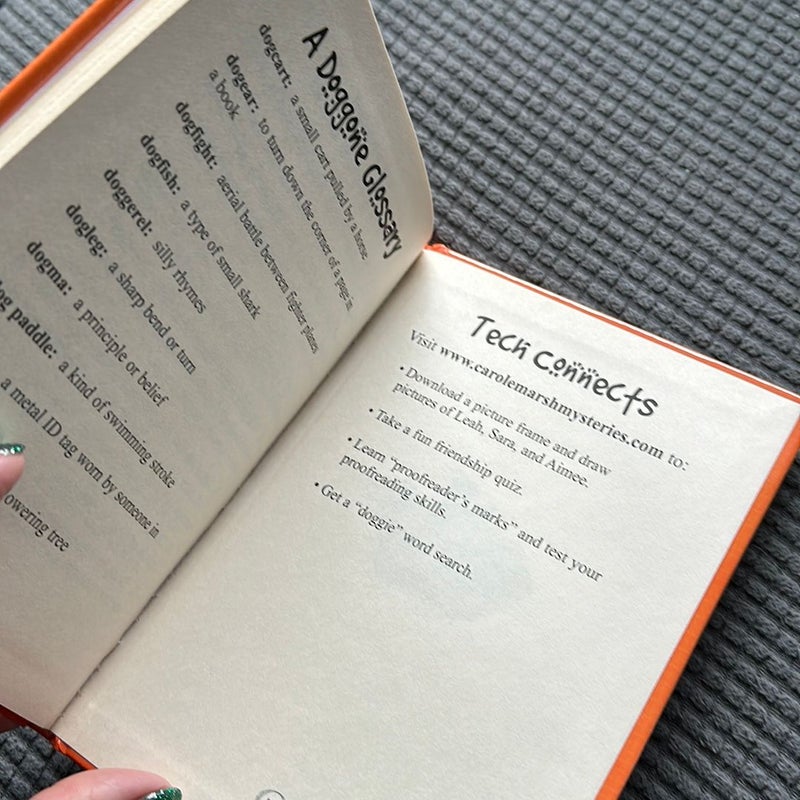 A Doggone Glossary
dogcart: a small cart pulled by a horse
dogear: to turn down the corner of a page in
a book
dogfight: aerial battle between fighter planes
dogfish: a type of small shark
doggerel: silly rhymes
dogleg: a sharp bend or turn
dogma: a principle or belief
paddle: a kind of swimming stroke
a metal ID tag worn by someone in
tree
Tech Connects
Visit www.carolemarshmysteries.com to:
• Download a picture frame and draw
pictures of Leah, Sara, and Aimee.
• Take a fun friendship quiz.
• Learn “proofreader’s marks” and test your
proofreading skills.
• Get a “doggie” word search.